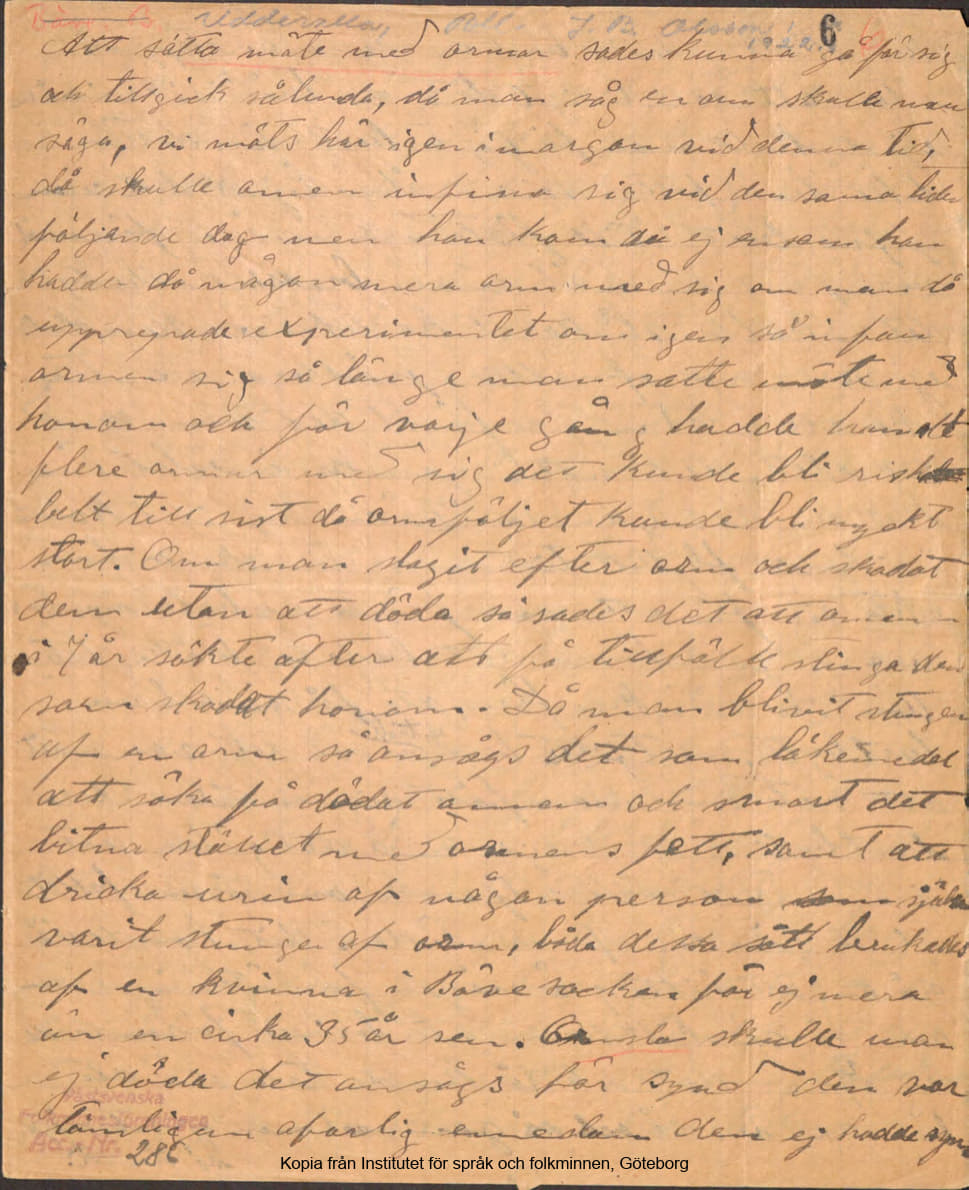 Bäve. B Uddevalla, J B Olsson 6
1922
Att sätta möte med ormar sades kunna gå för sig
och tillgick sålunda, då man såg en orm skulle man
säga, vi möts här igen i morgon vid denna tid,
då skulle ormen infina sig vid den samma tiden
följande dag men han kom då ej ensam han
hadde då någon mera orm med sig om man då
upprepade experimentet om igen så infan
ormen sig så länge man satte möte med
honom och för varje gång hadde han allt
flere ormar med sig det kunde bli riska
belt till sist då ormföljet kunde bli myckt
stort. Om man slagit efter orm och skadat
dem utan att döda så sades det att ormen
i 7 år sökte after att få tillfälle stinga den
som skadat honom. Då man blivit stungen
af en orm så ansågs det som läkemedel
att söka få dödat ormen och smort det
bitna stället med ormens fett, samt att
dricka urin af någon person som själv
varit stungen af orm, båda dessa sätt brukades
af en kvinna i Bäve socken för ej mera
än en cirka 35 år sen. Ormslo skulle man
ej döda det ansågs för synd den var
tämligen ofarlig emedan den ej hadde syn
Västsvenska
Folkminnesföreningen
Acc. Nr. 286
Kopia från Institutet för språk och folkminnen, Göteborg